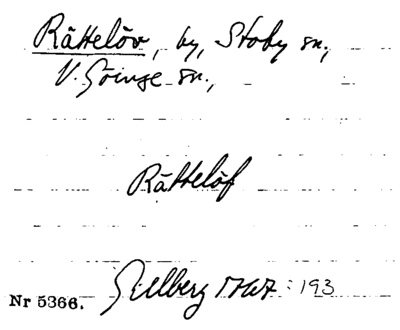 Rättelöv, by, Stoby sn,
V. Göinge sn.,
Rättelöf
Gillberg 1767 : 193
Nr 5366.